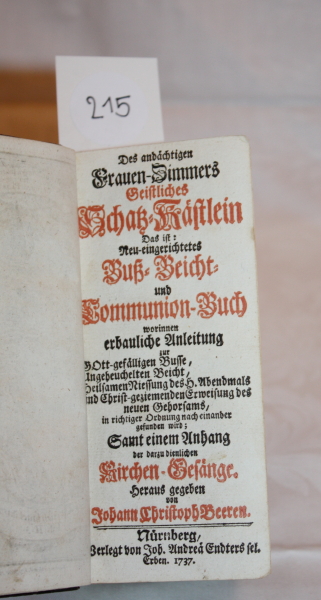 215
Des andächtigen
Frauen-Zimmers
Geistliches
Schatz-Kästlein
Das ist:
Neu-eingerichtetes
Buß- Beicht-
und
Communion-Buch
worinnen
erbauliche Anleitung
zur
GOtt-gefälligen Busse,
Ungeheuchelten Beicht,
Heilsamen Niessung des H. Abendmals
und Christ-geziemenden Erweisung des
neuen Gehorsams,
in richtiger Ordnung nach einander
gefunden wird;
Samt einem Anhang
der darzu dienlichen
Kirchen-Gesänge.
Heraus gegeben
von
Johann Christoph Beeren.
Nürnberg,
Verlegt von Joh. Andreä Endters sel.
Erben. 1737.